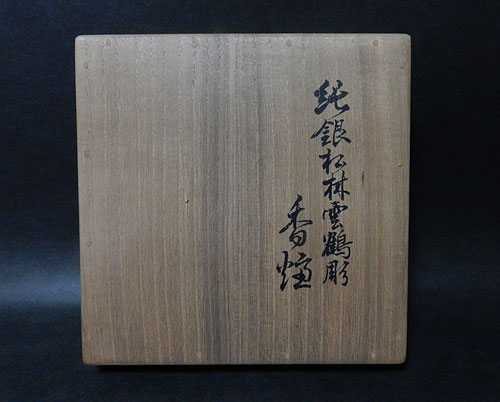 純銀松林雲鶴彫
香爐